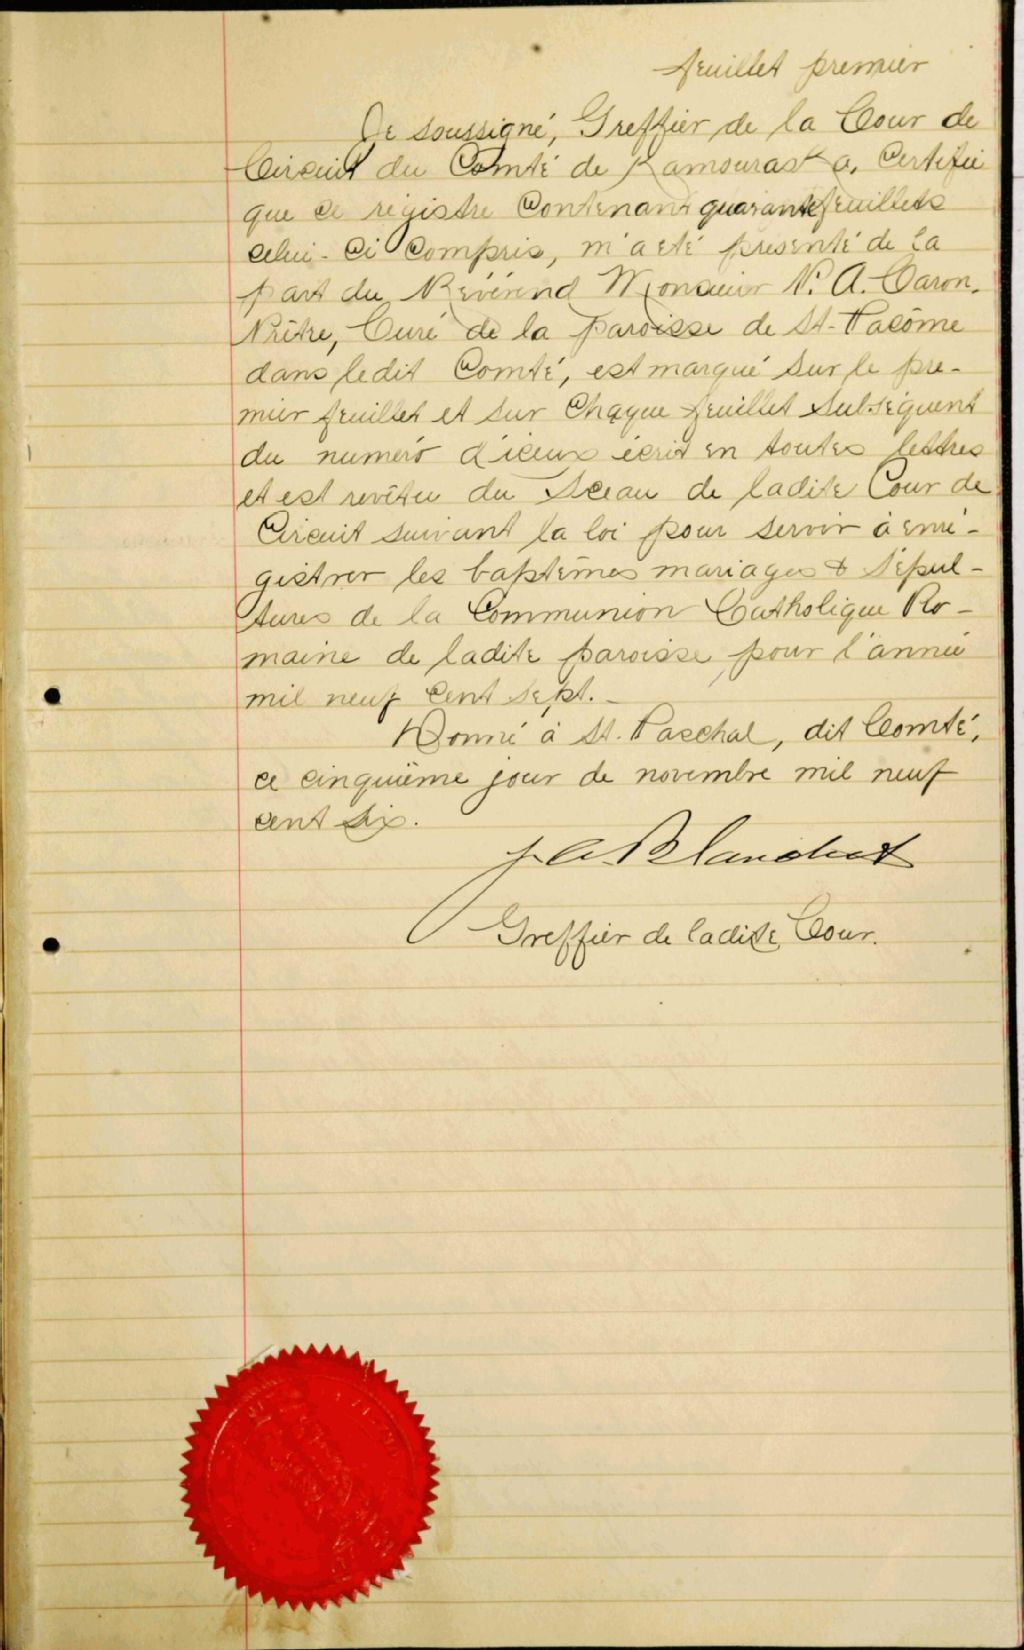 feuillet premier
Je soussigné, Greffier de la Cour de
Circuit du Comté de Kamouraska, Certifie
que ce régistre Contenant quarante feuillets
celui-Ci Compris, m'a été présenté de la
part du Révérend Monsieur N. A. Caron,
Prêtre, Curé de la paroisse de St-Pacôme
dans ledit Comté, est marqué sur le pre-
mier feuillet et sur Chaque feuillet subséquent
du numéro d'iceux écrit en toutes lettres
et est revêtu du Sceau de ladite Cour de
Circuit suivant la loi pour servir à enré-
gistrer les baptêmes mariages & sépul-
tures de la Communion Catholique Ro-
maine de ladite paroisse pour l'année
mil neuf cent sept.-
Donné à St. Paschal, dit Comté,
ce cinquième jour de novembre mil neuf
cent six.
Blanchet
Greffier de ladite Cour.